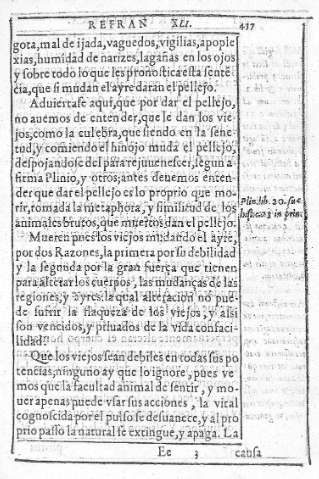 REFRAN XLI. 437
gota, mal de ijada, vaguedos, vigilias, apople
xias, humidad de narizes, lagañas en los ojos
y sobre todo lo que les pronostica esta sentē
cia, que si mudan el ayre daran el pellejo.
Aduiertase aqui, que por dar el pellejo,
no auemos de entender, que le dan los vie
jos, como la culebra, que siendo en la sene-
tud, y comiendo el hinojo muda el pellejo,
despojandose del para rejuuenescer, segun a
firma Plinio, y otros; antes deuemos enten-
der que dar el pellejo es lo proprio que mo-
rir, tomada la metaphora, y similitud de los
animales brutos, que muertos dan el pellejo.
Plin. lib. 20. sue
in prin.
Mueren pues los viejos mudando el ayre,
por dos Razones, la primera por su debilidad
y la segunda por la gran fuerça que tienen
para alterar los cuerpos, las mudanças de las
regiones, y ayres: la qual alteracion no pue-
de sufrir la flaqueza de los viejos, y assi
son vencidos, y priuados de la vida con faci-
lidad.
Que los viejos sean debiles en todas sus po
tencias, ninguno ay que lo ignore, pues ve
mos que la facultad animal de sentir, y mo-
uer apenas puede vsar sus acciones, la vital
cognoscida por el pulso se desuanece, y al pro
prio passo la natural se extingue, y apaga. La
Ee 3 causa